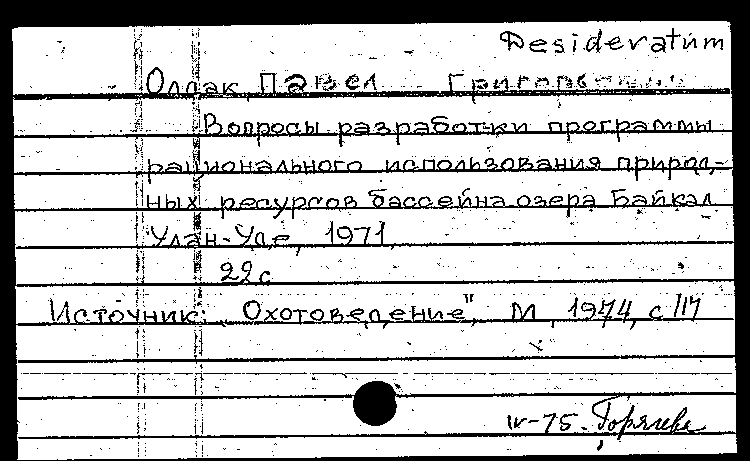 Desideratum
Олдак, Павел Григорьевич
Вопросы разработки программы
рационального использования природ-
ных ресурсов бассейна озера Байкал
Улан-Уде, 1971,
22 с
Источник: „Охотоведение", М, 1974, с 117
IV-75.